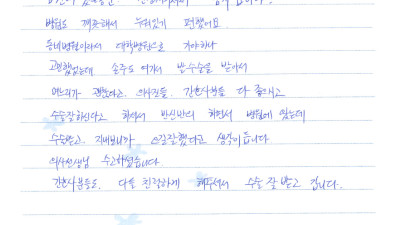 병원도 깨끗해서 누워있기 편했어요
동네병원이라서 대학병원으로 가야하나
고민했었는데 손주도 여기서 받수술을 받아서
며느리가 괜찮다고. 의사분들. 간호사분들 다 좋으시고
수술잘하신다고 하셔서 반신반의 하면서 병원에 있는데
수술받고. 지내보니까 오길잘했다고 생각이 듭니다
의사선생님 수고하셨습니다.
간호사분들도. 다들 친절하게 해주셔서 수술 잘 받고 갑니다.